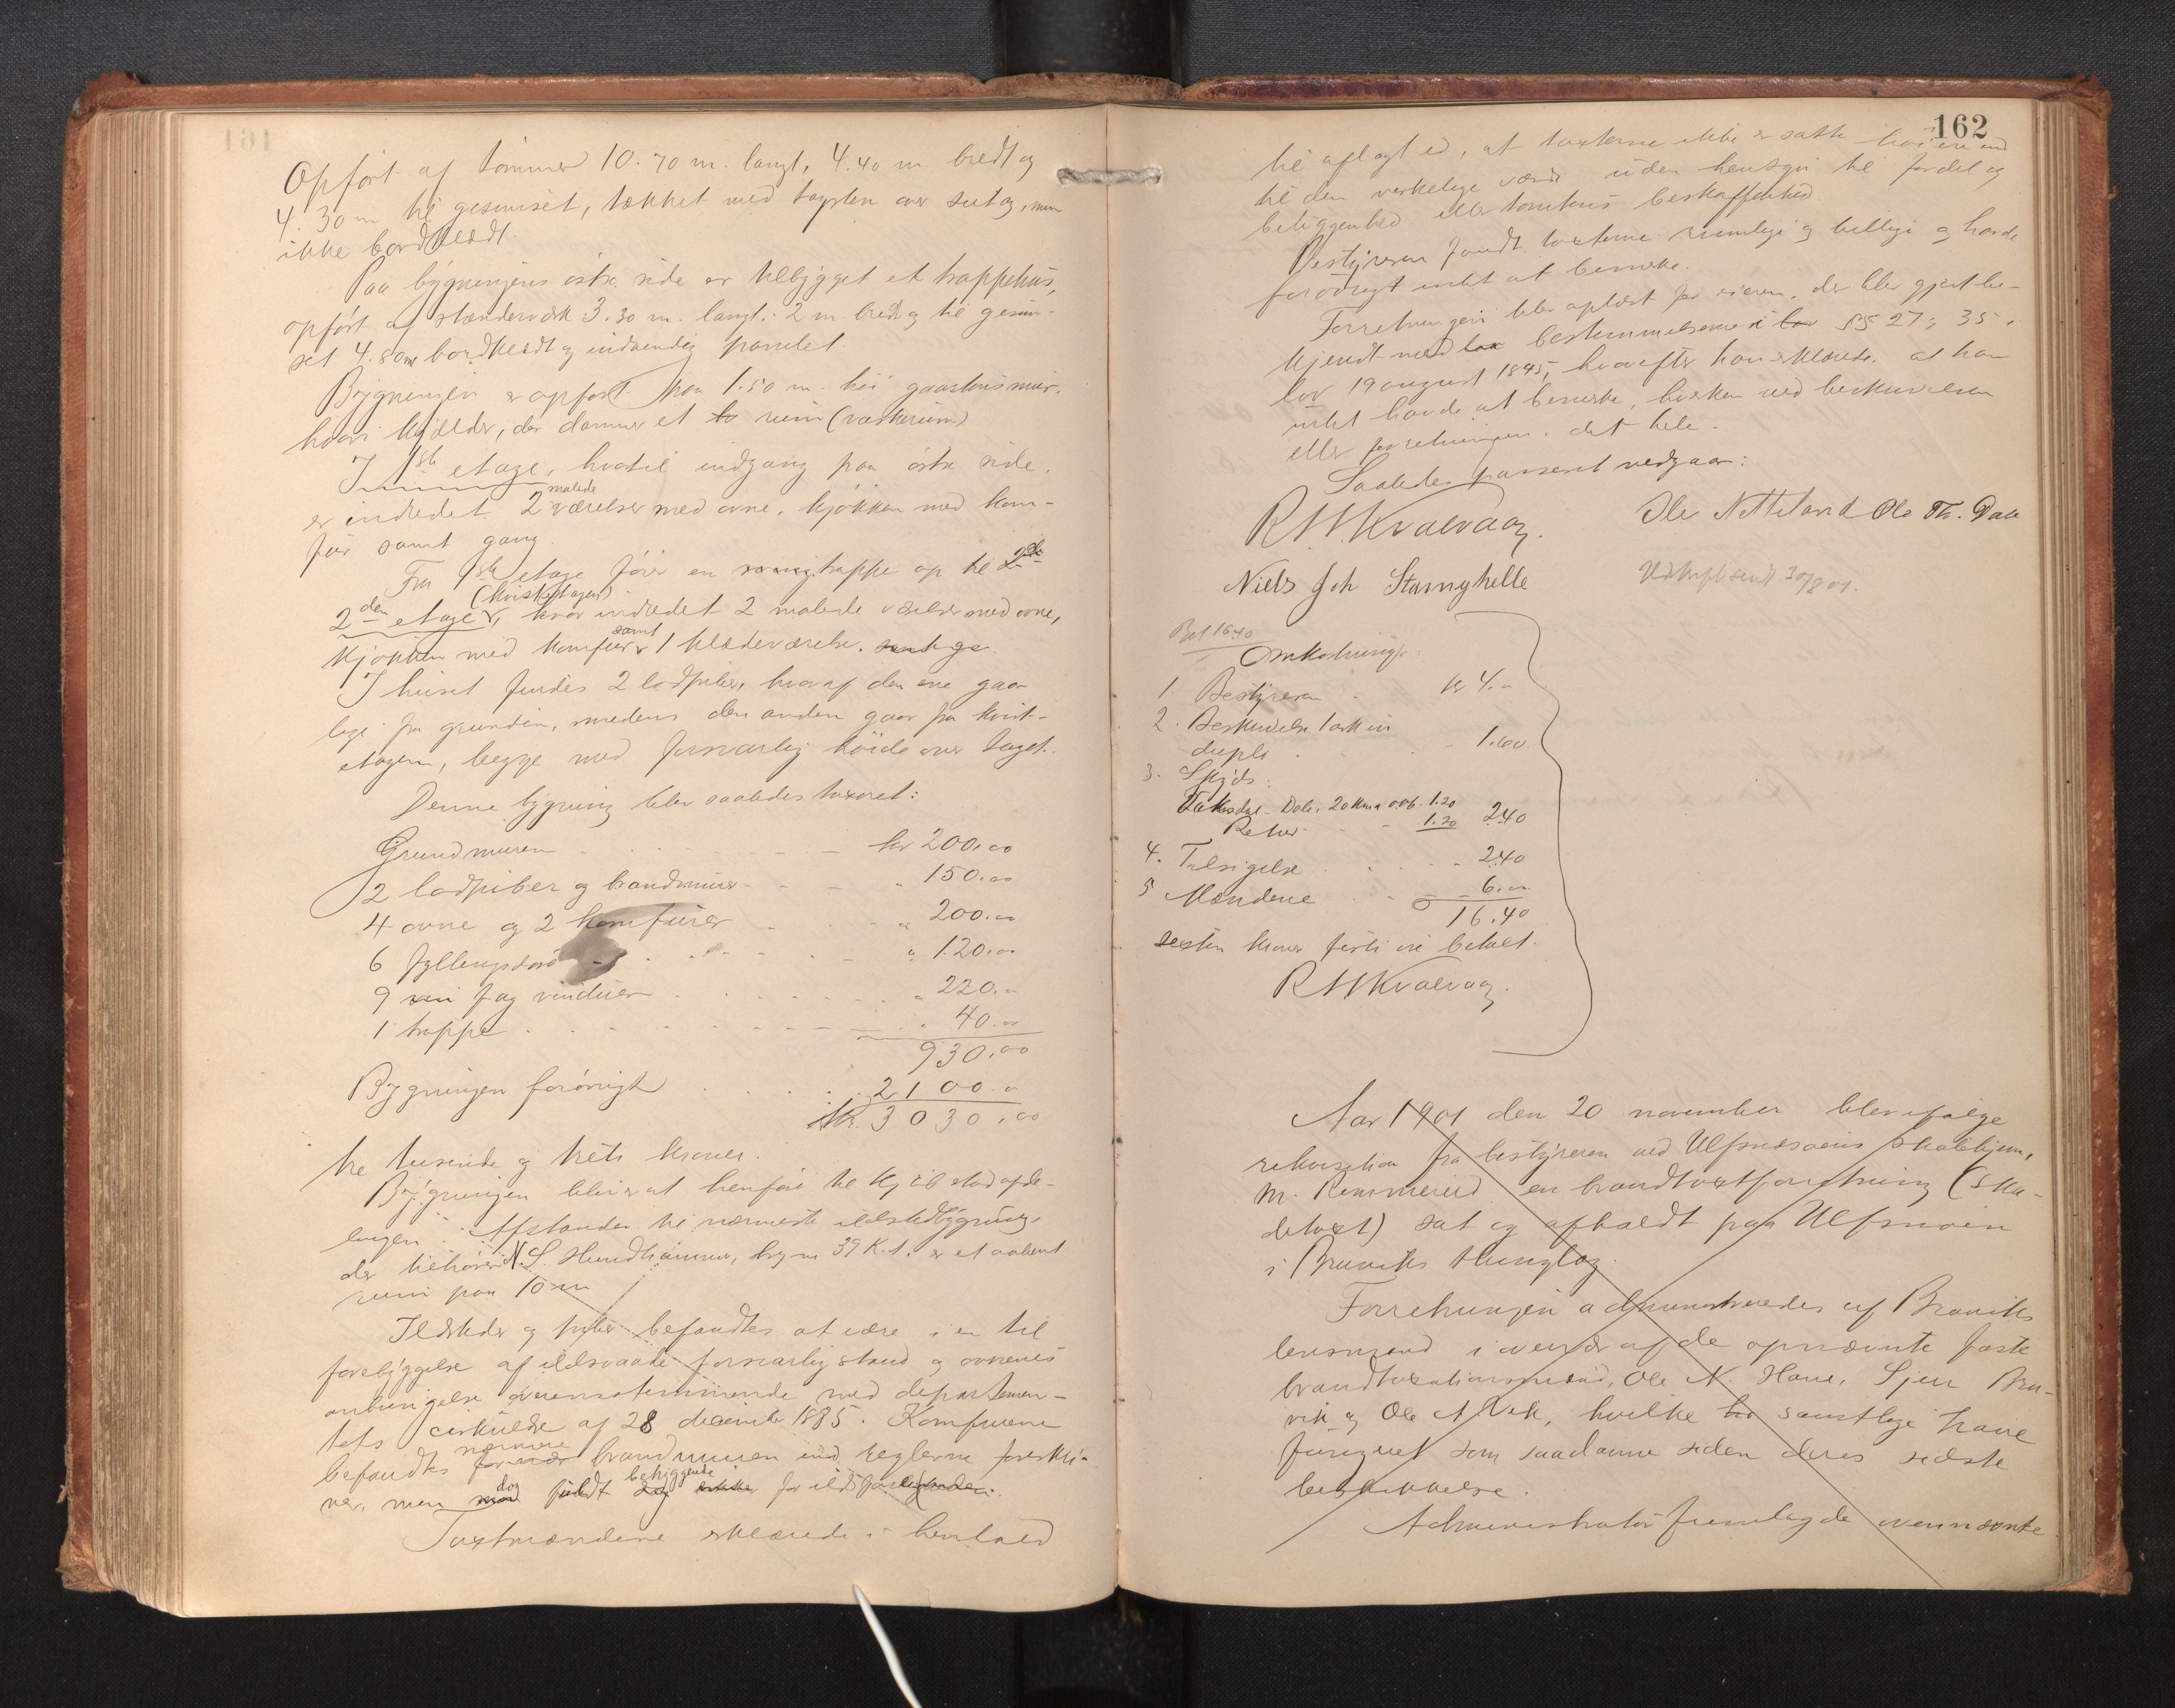 Opført af tømmer 10.70 m. langt, 4.40 m bredt og
4.30 m til gesimset, tækket med tagsten over sutag, men
ikke bordklædt.
Paa bygningens østre side er tilbygget et trappehus,
opført af stænderværk 3.30 m. langt, 2 m bredt og til gesim-
set 4.80 m bordklædt og indvendig panelet.
Bygningen er opført paa 1.50 m. høi graastensmur,
hvori kjælder, der danner et rum (vaskerum)
I 1ste etage, hvortil indgang paa østre side,
er indredet 2 malede værelser med ovne, kjøkken med kom-
fur samt gang.
Fra 1ste etage fører en trappe op til
2den etage (kvistetagen), hvor indredet 2 malede værelser med ovne,
kjøkken med komfur samt 1 klædeværelse.
I huset findes 2 lodpiber, hvoraf den ene gaar
lige fra grunden, medens den anden gaar fra kvist-
etagen, begge med forsvarlig høide over taget.
Denne bygning blev saaledes taxeret:
Grundmuren kr 200.00
2 lodpiber og brandmure " 150.00
4 ovne og 2 komfurer " 200.00
6 fyllingsdøre " 120.00
9 fag vinduer " 220.00
1 trappe " 40.00
930.00
Bygningen forøvrigt 2100.00
Kr. 3030.00
tre tusinde og treti kroner.
Bygningen blev at henføre til kjøbstadafde-
lingen. Afstanden til nærmeste ildstedbygning,
der tilhører N. S. Hundhammer, br. no 39 K. 1. er et aabent
rum paa 10 m
Ildsteder og piber befandtes at være i en til
forebyggelse af ildsvaade forsvarlig stand og ovnenes
anbringelse overensstemmende med departemen-
tets cirkulære af 28 december 1885. Komfurerne
befandtes nærmere brandmuren end reglerne foreskri-
ver, men dog fuldt betryggende for ildsfare.
Taxtmændene erklærede i henhold
162
til aflagt ed, at taxterne ikke er satte høiere end
til den virkelige værdi uden hensyn til fordel og
beliggenhed eller tomtens beskaffenhed.
Bestyreren fandt taxterne rimelige og billige og havde
forøvrigt intet at bemerke.
Forretningen blev oplæst for eieren, der blev gjort be-
kjendt med bestemmelserne i §§ 27 og 35 i
lov 19 august 1845, hvorefter han erklærede, at han
intet havde at bemerke, hverken ved beskrivelsen
eller forretningen i det hele.
Saaledes passeret vedgaar:
R M Kvalvaag. Ole Netteland Ole Th. Dale
Niels Joh Stamnghelle Udskrift sendt 30/8 01.
Bet 16.40
Omkostninger:
1 Bestyreren kr 4.00
2. Beskrivelse 1 ark in
duplo 1.60
3. Skyds:
Takesdal - Dale, 20 km a 0.06 1.20
Retur 1.20 2.40
4. Tilsigelse 2.40
5 Mændene 6.00
16.40
seisten kroner førti øre betalt.
R M Kvalvaag.
Aar 1901 den 20 november blev ifølge
rekvisition fra bestyreren ved Ulfsnesøens skolehjem,
M. Remmerud en brandtaxtforretning (ska-
detaxt) sat og afholdt paa Ulfsnesøen
i Bruviks thinglag.
Forretningen administreredes af Bruviks
lensmand i overvær af de opnævnte faste
brandtaxationsmænd, Ole N. Hane, Sjur Bru-
vik og Ole A Vik, hvilke samtlige have
fungeret som saadanne siden deres sidste
beskikkelse.
Administrator fremlagde ovennævnte